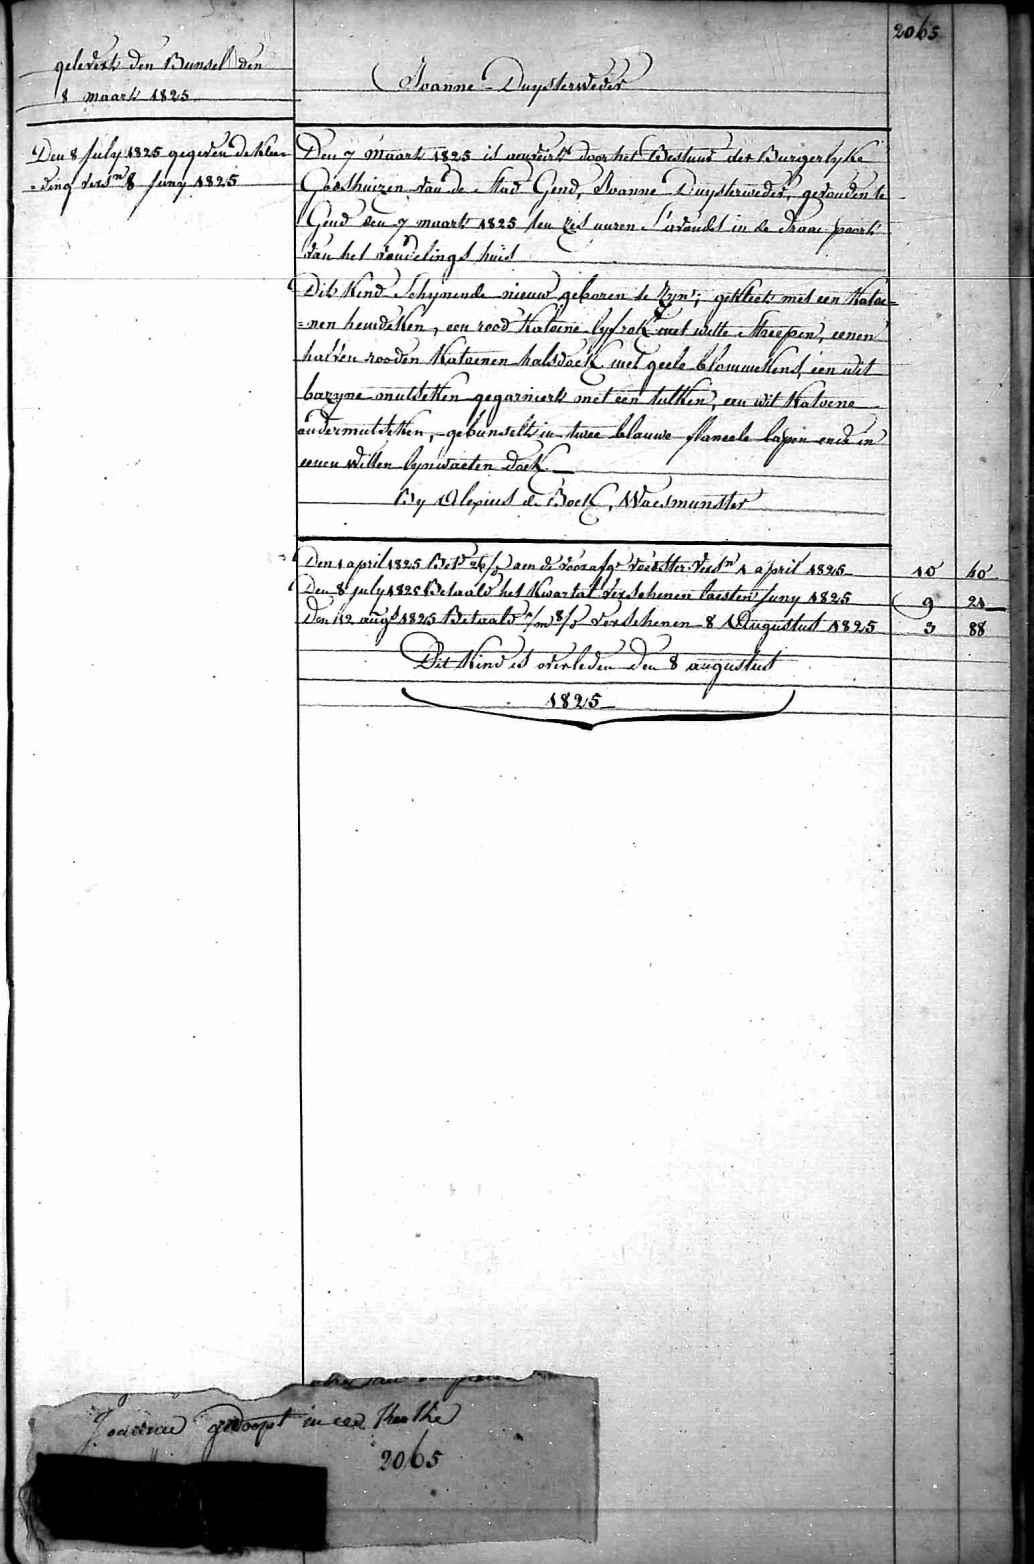 2065
gelevert den Bunsel den
8 maart 1825
Joanne Duysterweder
Den 8 July 1825 gegeven de klee=
=ding versn 8 Juny 1825
Den 7 maart 1825 is aenveird door het Bestuur der Burgerlyke
Godshuizen van de Stad Gend, Joanne Duysterweder, gevonden te
Gend den 7 maart 1825 ten zes uuren s'avonds in de Draae-poort
van het vondelings huis
Dit Kind Schynende nieuw geboren te Zyn; gekleet met een Katoe=
=nen hemdeken, een rood Katoene lyfrok met witte Streepen, eenen
halven rooden Katoenen halsdoek met geele blommekens, een wit
bazyne mutseken gegarniert met een tulken, een wit Katoene
ondermutseken, gebunselt in twee blauwe flaneele lapen ende in
eenen witten lynwaeten doek.
By Alexius de Bock, Waesmunster
Den 1 april 1825 Betd aen de voorafge voedster versn 1 april 1825 10 40
Den 8 july 1825 Betaald het Kwartal verschenen laesten Juny 1825 9 21
Den 12 augs 1825 Betaald verschenen 8 Augustus 1825 3 88
Dit Kind is overleden den 8 augustus
1825
Joanna gedoopt in
2065